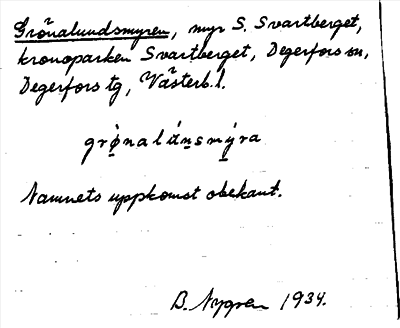 Grönalundsmyren, myr S. Svartberget,
kronoparken Svartberget, Degerfors sn,
Degerfors tg, Västerb. l.
grø̀nalúnsmýra
Namnets uppkomst obekant.
B. Nygren 1934.